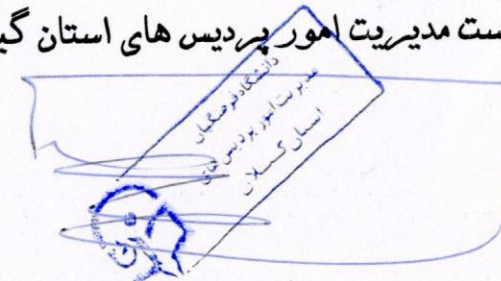 ست مدیریت امور پردیس های استان گی
دانشگاه فرهنگیان
مدیریت امور پردیس های
استان گیلان